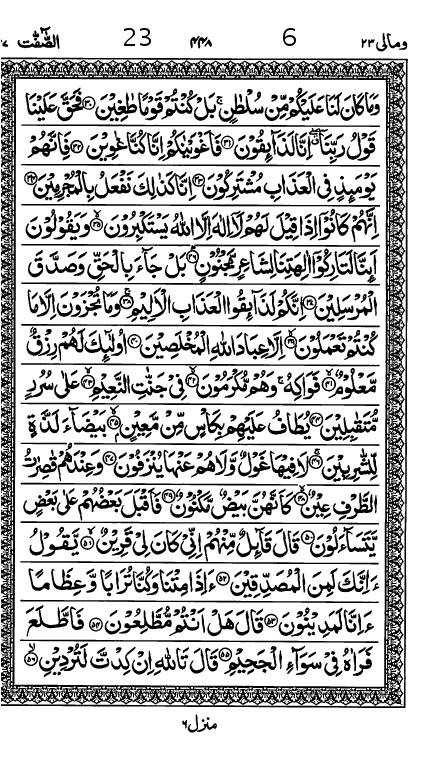 ومالی ٢٣ 6 ۴۴۸ 23 الصّٰٓفّٰت ٣٧
وَمَا كَانَ لَنَا عَلَيْكُمْ مِّنْ سُلْطٰنٍ ۚ بَلْ كُنْتُمْ قَوْمًا طٰغِيْنَ ﴿٣٠﴾ فَحَقَّ عَلَيْنَا
قَوْلُ رَبِّنَآ ۖ اِنَّا لَذَآئِقُوْنَ ﴿٣١﴾ فَاَغْوَيْنٰكُمْ اِنَّا كُنَّا غٰوِيْنَ ﴿٣٢﴾ فَاِنَّهُمْ
يَوْمَئِذٍ فِى الْعَذَابِ مُشْتَرِكُوْنَ ﴿٣٣﴾ اِنَّا كَذٰلِكَ نَفْعَلُ بِالْمُجْرِمِيْنَ ﴿٣٤﴾
اِنَّهُمْ كَانُوْٓا اِذَا قِيْلَ لَهُمْ لَآ اِلٰهَ اِلَّا اللّٰهُ يَسْتَكْبِرُوْنَ ﴿٣٥﴾ وَيَقُوْلُوْنَ
اَئِنَّا لَتَارِكُوْٓا اٰلِهَتِنَا لِشَاعِرٍ مَّجْنُوْنٍ ﴿٣٦﴾ بَلْ جَآءَ بِالْحَقِّ وَصَدَّقَ
الْمُرْسَلِيْنَ ﴿٣٧﴾ اِنَّكُمْ لَذَآئِقُوا الْعَذَابِ الْاَلِيْمِ ﴿٣٨﴾ وَمَا تُجْزَوْنَ اِلَّا مَا
كُنْتُمْ تَعْمَلُوْنَ ﴿٣٩﴾ اِلَّا عِبَادَ اللّٰهِ الْمُخْلَصِيْنَ ﴿٤٠﴾ اُولٰٓئِكَ لَهُمْ رِزْقٌ
مَّعْلُوْمٌ ﴿٤١﴾ فَوَاكِهُ ۚ وَهُمْ مُّكْرَمُوْنَ ﴿٤٢﴾ فِىْ جَنّٰتِ النَّعِيْمِ ﴿٤٣﴾ عَلٰى سُرُرٍ
مُّتَقٰبِلِيْنَ ﴿٤٤﴾ يُطَافُ عَلَيْهِمْ بِكَاْسٍ مِّنْ مَّعِيْنٍ ﴿٤٥﴾ بَيْضَآءَ لَذَّةٍ
لِّلشّٰرِبِيْنَ ﴿٤٦﴾ لَا فِيْهَا غَوْلٌ وَّلَا هُمْ عَنْهَا يُنْزَفُوْنَ ﴿٤٧﴾ وَعِنْدَهُمْ قٰصِرٰتُ
الطَّرْفِ عِيْنٌ ﴿٤٨﴾ كَاَنَّهُنَّ بَيْضٌ مَّكْنُوْنٌ ﴿٤٩﴾ فَاَقْبَلَ بَعْضُهُمْ عَلٰى بَعْضٍ
يَّتَسَآءَلُوْنَ ﴿٥٠﴾ قَالَ قَآئِلٌ مِّنْهُمْ اِنِّىْ كَانَ لِىْ قَرِيْنٌ ﴿٥١﴾ يَّقُوْلُ
ءَاِنَّكَ لَمِنَ الْمُصَدِّقِيْنَ ﴿٥٢﴾ ءَاِذَا مِتْنَا وَكُنَّا تُرَابًا وَّعِظَامًا
ءَاِنَّا لَمَدِيْنُوْنَ ﴿٥٣﴾ قَالَ هَلْ اَنْتُمْ مُّطَّلِعُوْنَ ﴿٥٤﴾ فَاطَّلَعَ
فَرَاٰهُ فِىْ سَوَآءِ الْجَحِيْمِ ﴿٥٥﴾ قَالَ تَاللّٰهِ اِنْ كِدْتَّ لَتُرْدِيْنِ ﴿٥٦﴾
منزل ٦